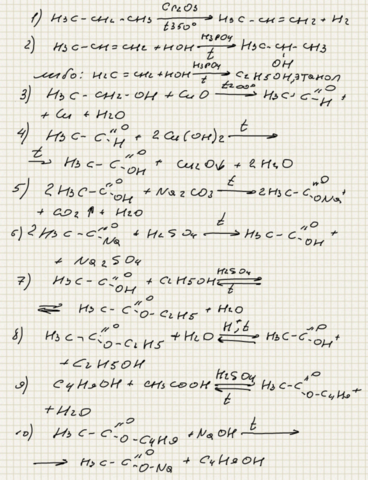 1) H3C-CH2-CH3 Cr2O3 t350° → H3C-CH=CH2 + H2
2) H3C-CH=CH2 + HOH H3PO4 t → H3C-CH-CH3
OH
либо: H2C=CH2+HOH H3PO4 t → C2H5OH, этанол
3) H3C-CH2-OH + CuO t200° → H3C-C=O-H +
+ Cu + H2O
4) H3C-C=O-H + 2Cu(OH)2 t →
t → H3C-C=O-OH + Cu2O↓ + 2H2O
5) 2H3C-C=O-OH + Na2CO3 t → 2H3C-C=O-ONa+
+ CO2↑ + H2O
6) 2H3C-C=O-Na + H2SO4 t → H3C-C=O-OH +
+ Na2SO4
7) H3C-C=O-OH + C2H5OH H2SO4 t ⇌
⇌ H3C-C=O-O-C2H5 + H2O
8) H3C-C=O-O-C2H5 + H2O H+; t ⇌ H3C-C=O-OH +
+ C2H5OH
9) C4H9OH + CH3COOH H2SO4 t ⇌ H3C-C=O-O-C4H9+
+H2O
10) H3C-C=O-O-C4H9 + NaOH t →
→ H3C-C=O-O-Na + C4H9OH